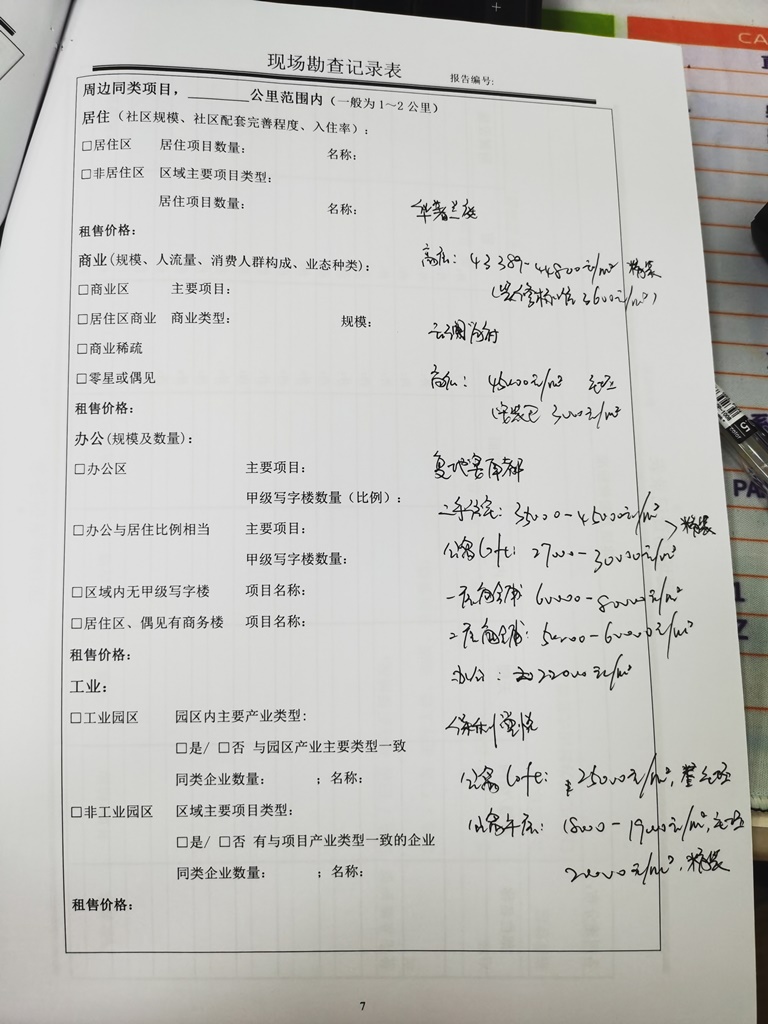 现场勘查记录表
报告编号:
周边同类项目，______公里范围内（一般为1～2公里）
居住（社区规模、社区配套完善程度、入住率）:
□居住区 居住项目数量: 名称:
□非居住区 区域主要项目类型:
居住项目数量: 名称:
华著兰庭
租售价格:
高层: 43389-44800元/m² 精装
商业(规模、人流量、消费人群构成、业态种类):
(装修标准3600元/m²)
□商业区 主要项目:
□居住区商业 商业类型: 规模:
□商业稀疏
□零星或偶见
高层: 45000元/m² 毛坯
3000元/m²
租售价格:
办公(规模及数量):
□办公区 主要项目:
复地宴南都
甲级写字楼数量（比例）:
二手住宅: 35000-45000元/m²
精装
□办公与居住比例相当 主要项目:
公寓loft: 27000-30000元/m²
甲级写字楼数量:
□区域内无甲级写字楼 项目名称:
一层商铺 60000-80000元/m²
□居住区、偶见有商务楼 项目名称:
二层商铺: 50000-60000元/m²
租售价格:
办公: 22000元/m²
工业:
□工业园区 园区内主要产业类型:
保利堂悦
□是/ □否 与园区产业主要类型一致
公寓loft: 25000元/m², 毛坯
同类企业数量: ；名称:
□非工业园区 区域主要项目类型:
公寓平层: 18000-19000元/m², 毛坯
□是/ □否 有与项目产业类型一致的企业
20000元/m², 精装
同类企业数量: ；名称:
租售价格:
7
CA
PA